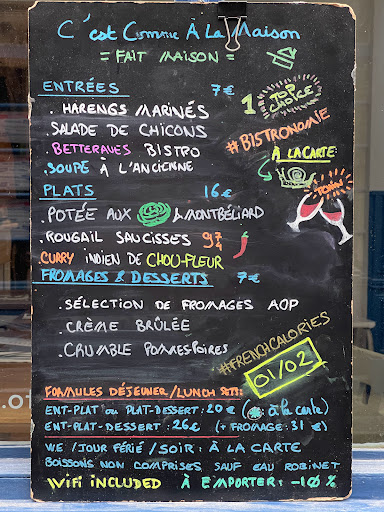 C'est Comme À La Maison
= FAIT MAISON =
ENTRÉES 7€
. HARENGS MARINÉS
. SALADE DE CHICONS
. BETTERAVES BISTRO
. SOUPE À L'ANCIENNE
1 TOP CHOICE
#BISTRONOMIE
À LA CARTE
PLATS 16€
. POTÉE AUX & MONTBÉLIARD
. ROUGAIL SAUCISSES 974
. CURRY INDIEN DE CHOU-FLEUR
FROMAGES & DESSERTS 7€
. SÉLECTION DE FROMAGES AOP
. CRÈME BRÛLÉE
. CRUMBLE POMMES-POIRES
#FRENCHCALORIES
01/02
FORMULES DÉJEUNER/LUNCH SETS:
ENT-PLAT ou PLAT-DESSERT: 20€ ( à la carte)
ENT-PLAT-DESSERT: 26€ (+ FROMAGE: 31€)
WE/JOUR FÉRIÉ/SOIR: À LA CARTE
BOISSONS NON COMPRISES SAUF EAU ROBINET
WIFI INCLUDED À EMPORTER: -10%